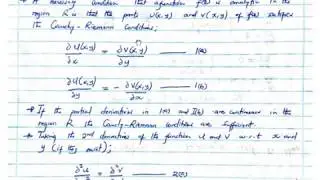 A necessary condition that a function f(z) is analytic in the
region R is that the parts u(x,y) and v(x,y) of f(z) satisfies
the Cauchy-Riemann Conditions;
∂u(x,y)/∂x = ∂v(x,y)/∂y — 1(a)
∂u(x,y)/∂y = -∂v(x,y)/∂x — 1(b)
→ If the partial derivatives in 1(a) and 1(b) are continuous in the
region R the Cauchy-Riemann conditions are sufficient.
→ Taking the 2nd derivatives of the function u and v w.r.t x and
y (if they exist);
∂²u = ∂²v — 2(a)